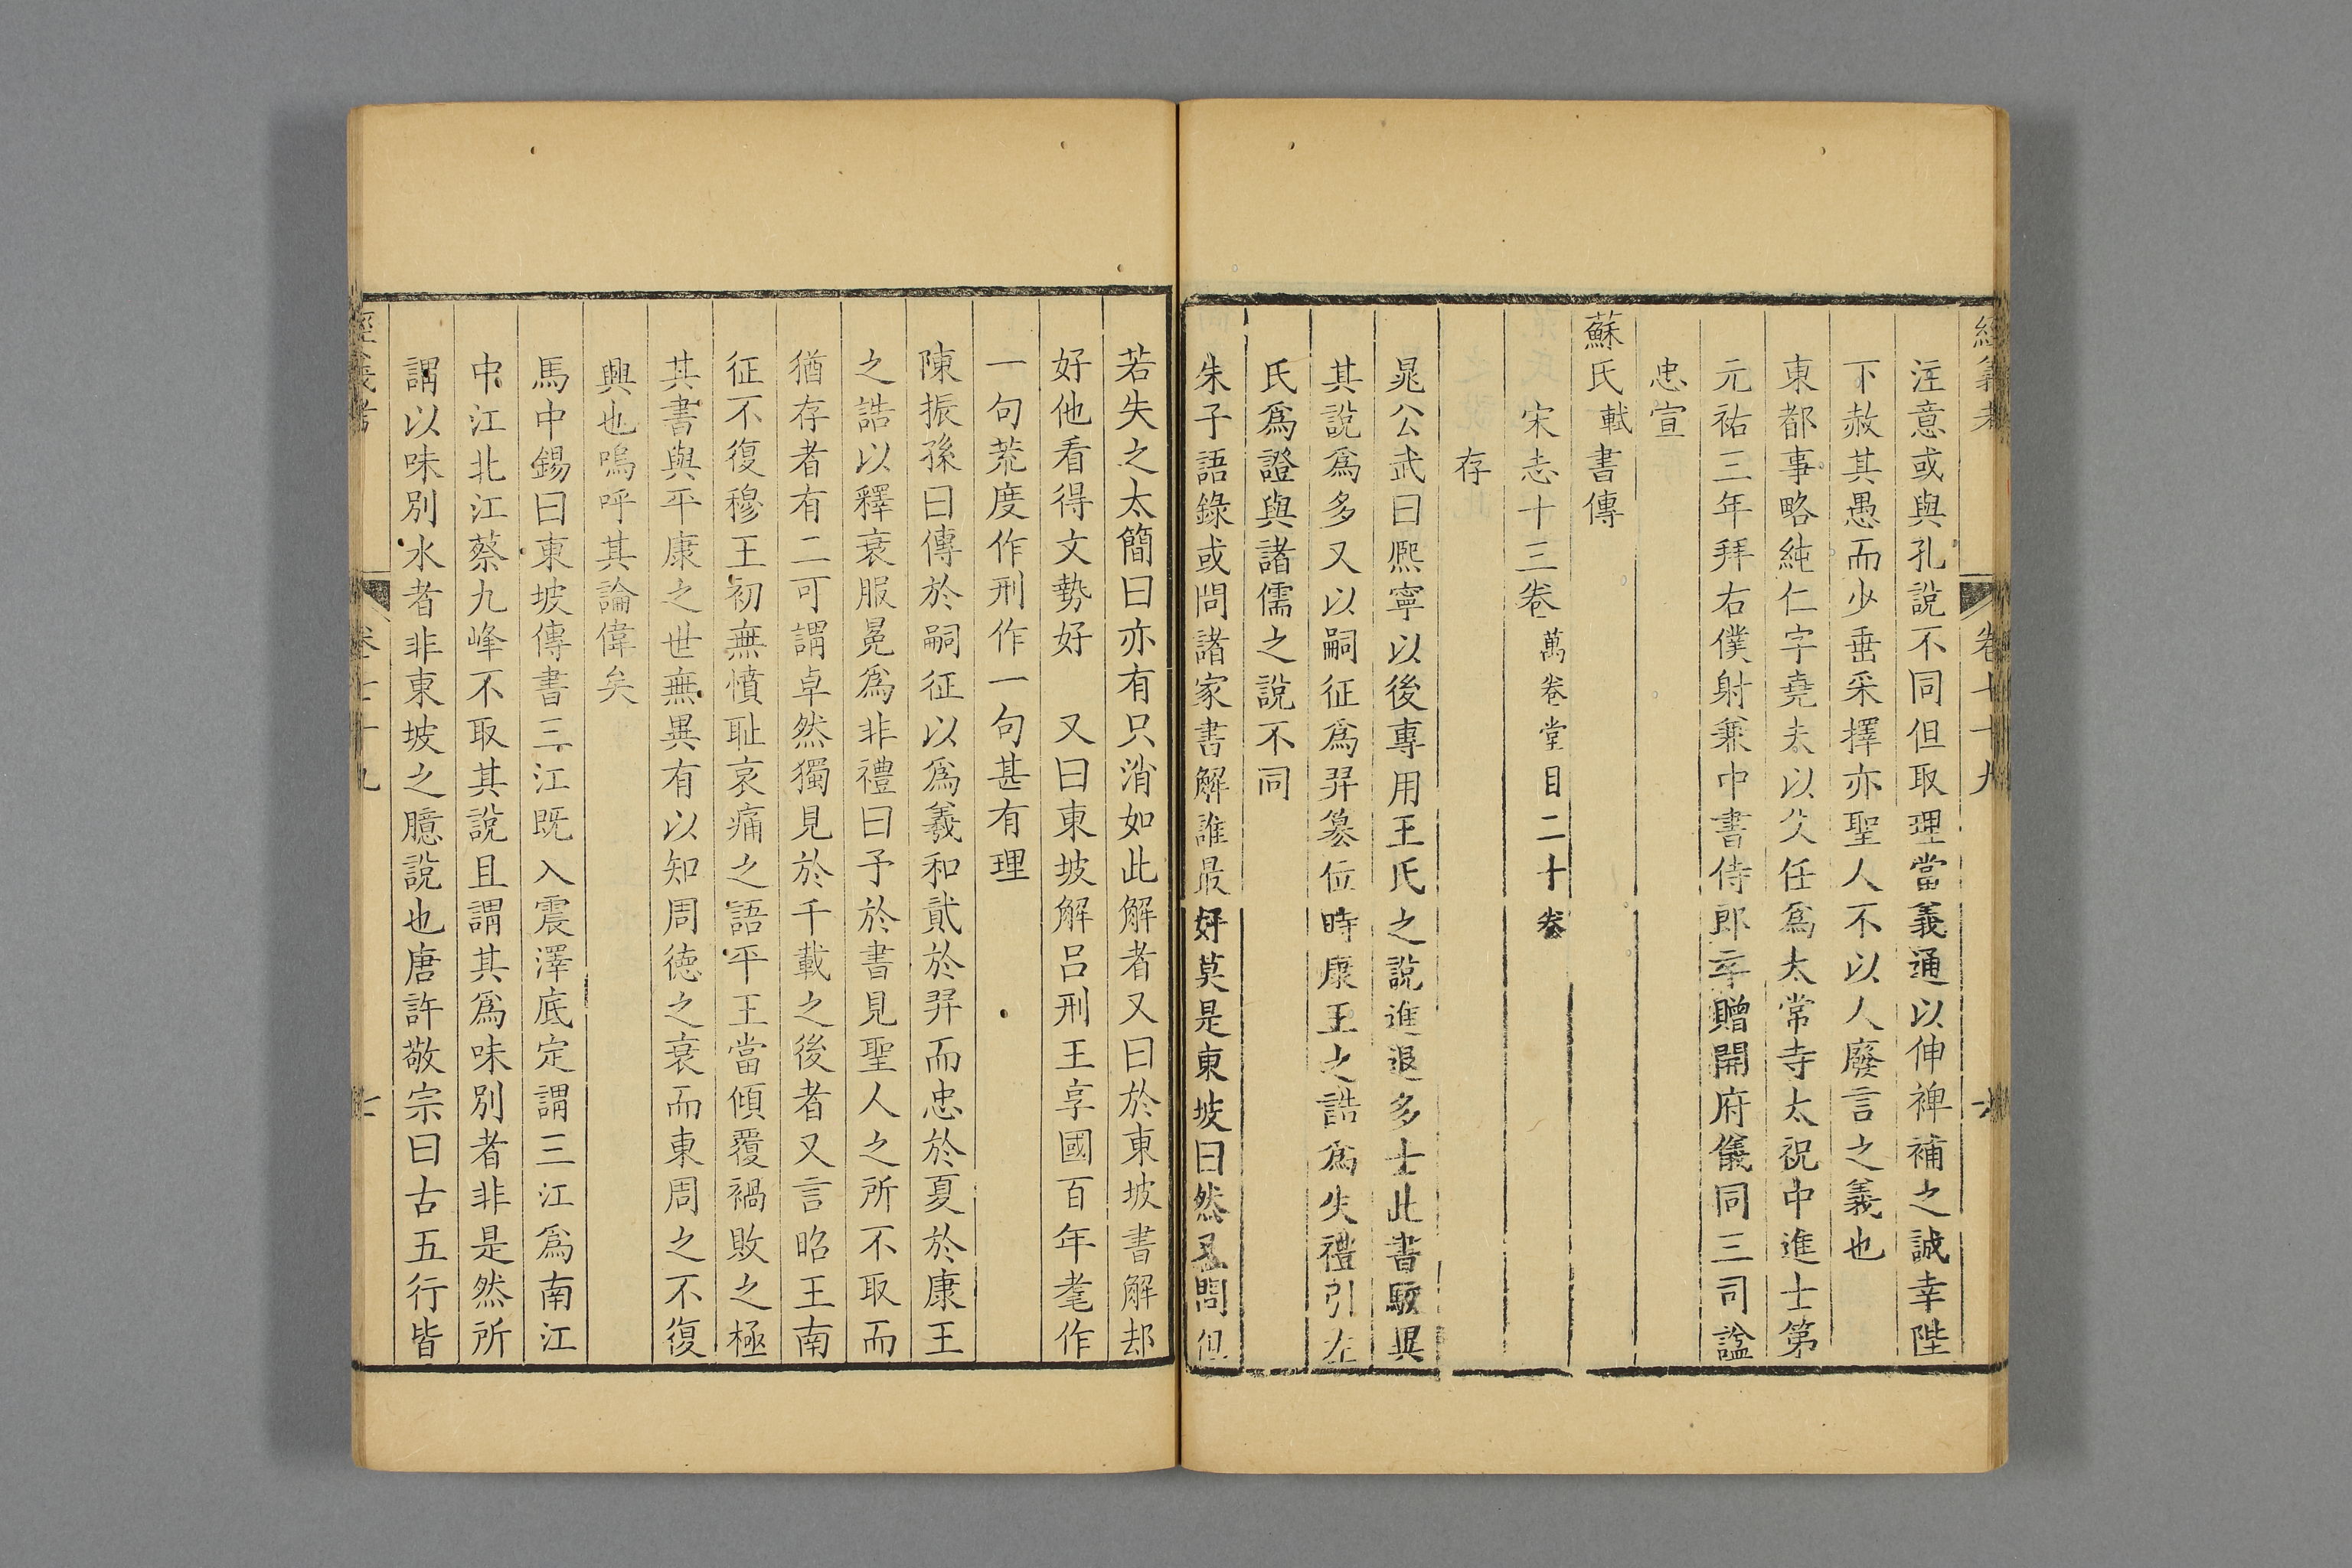 經義考 卷七十九 六
注意或與孔說不同但取理當義通以伸裨補之誠幸陛
下赦其愚而少垂采擇亦聖人不以人廢言之義也
東都事略純仁字堯夫以父任爲太常寺太祝中進士第
元祐三年拜右僕射兼中書侍郎卒贈開府儀同三司諡
忠宣
蘇氏軾書傳
宋志十三卷萬卷堂目二十卷
存
晁公武曰熙寧以後專用王氏之說進退多士此書駁異
其說爲多又以嗣征爲羿篡位時康王之誥爲失禮引左
氏爲證與諸儒之說不同
朱子語錄或問諸家書解誰最好莫是東坡曰然又問但
若失之太簡曰亦有只消如此解者又曰於東坡書解却
好他看得文勢好 又曰東坡解呂刑王享國百年耄作
一句荒度作刑作一句甚有理
陳振孫曰傳於嗣征以爲羲和貳於羿而忠於夏於康王
之誥以釋衰服冕爲非禮曰予於書見聖人之所不取而
猶存者有二可謂卓然獨見於千載之後者又言昭王南
征不復穆王初無憤恥哀痛之語平王當傾覆禍敗之極
其書與平康之世無異有以知周德之衰而東周之不復
興也嗚呼其論偉矣
馬中錫曰東坡傳書三江既入震澤底定謂三江爲南江
中江北江蔡九峰不取其說且謂其爲味別者非是然所
謂以味別水者非東坡之臆說也唐許敬宗曰古五行皆
經義考 卷七十九 七